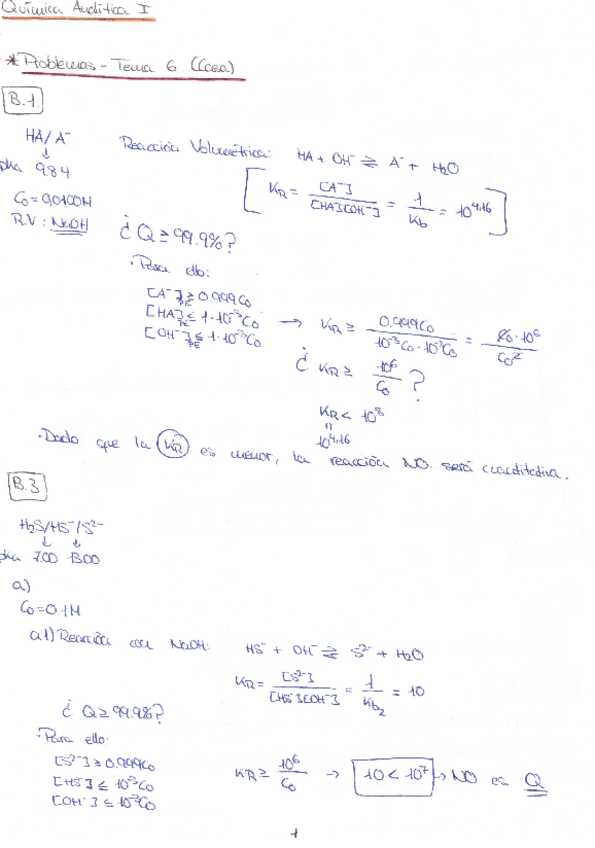 Química Analítica I
* Problemas - Tema 6 (Casa)
B.1
HA/A⁻
↓
pka 9.84
C₀=0,0100M
R.V: NaOH
Reacción Volumétrica: HA + OH⁻ ⇌ A⁻ + H₂O
[ K_R = [A⁻] / [HA][OH⁻] = 1 / K_b = 10^4,16 ]
¿ Q ≥ 99.9%?
· Para ello:
[A⁻]_PE ≥ 0.999C₀
[HA]_PE ≤ 1·10⁻³C₀
[OH⁻]_PE ≤ 1·10⁻³C₀
→ K_R ≥ 0.999C₀ / 10⁻³C₀·10⁻³C₀ = C₀·10⁶ / C₀²
¿ K_R ≥ 10⁶ / C₀ ?
K_R < 10⁸
=
10^4,16
· Dado que la K_R es menor, la reacción NO será cuantitativa.
B.3
H₂S/HS⁻/S²⁻
↓ ↓
pka 7.00 13.00
a)
C₀=0.1M
a1) Reacción con NaOH: HS⁻ + OH⁻ ⇌ S²⁻ + H₂O
K_R = [S²⁻] / [HS⁻][OH⁻] = 1 / K_b₂ = 10
¿ Q ≥ 99.9%?
· Para ello:
[S²⁻] ≥ 0.999C₀
[HS⁻] ≤ 10⁻³C₀
[OH⁻] ≤ 10⁻³C₀
K_R ≥ 10⁶ / C₀ → 10 < 10⁷ → NO es Q
1